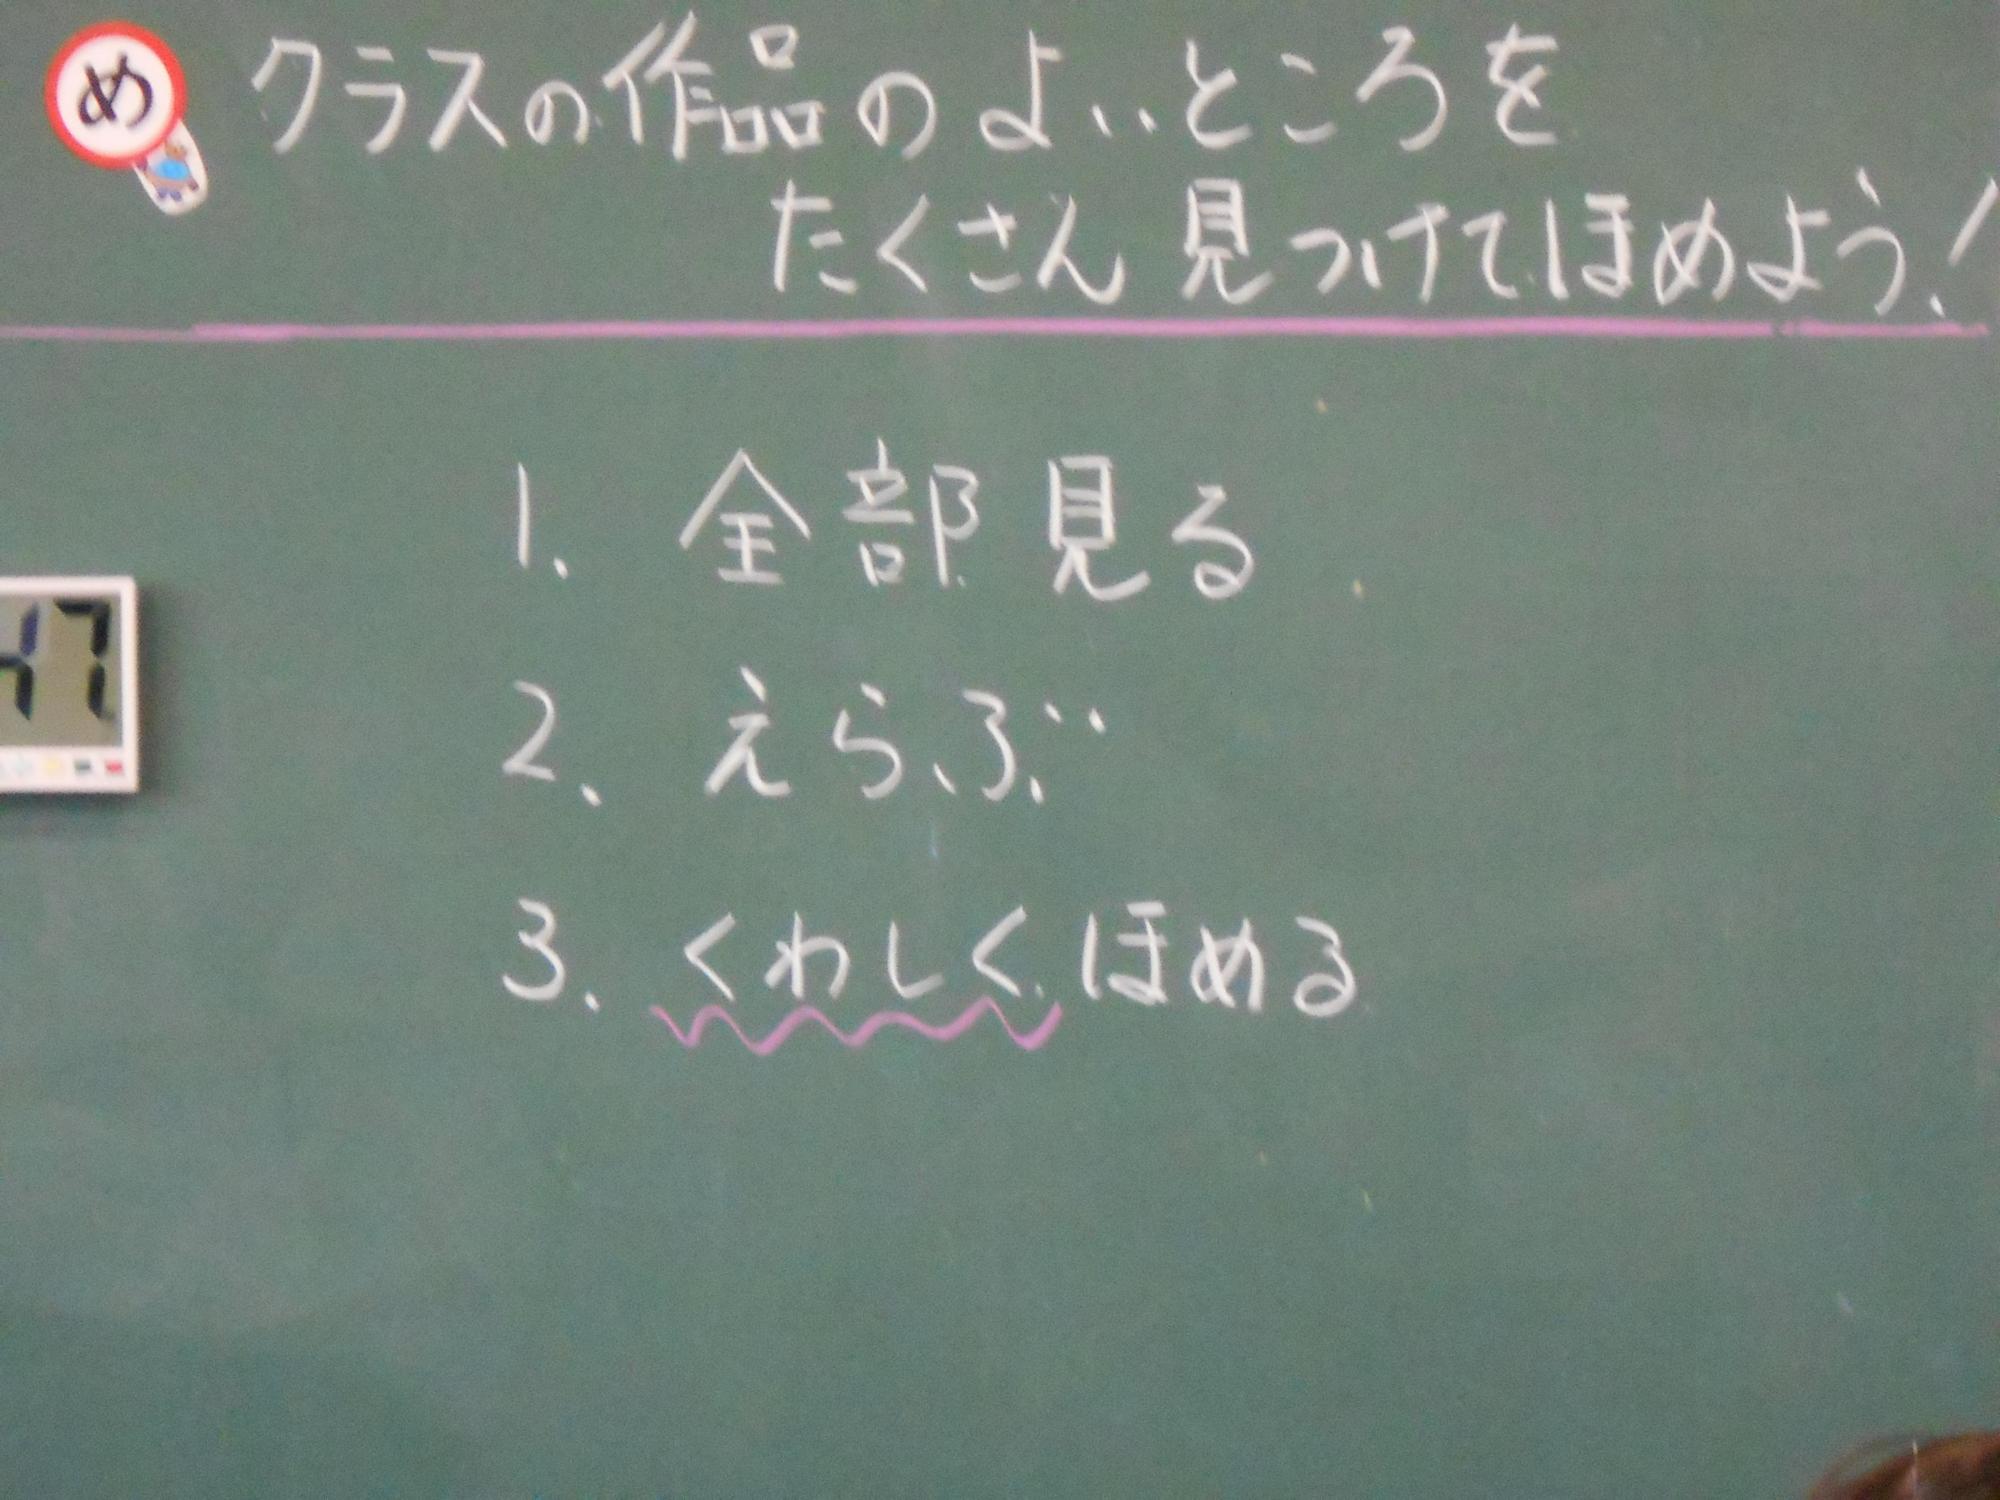 め クラスの作品のよいところを
たくさん見つけてほめよう!
1. 全部見る
47
2. えらぶ
3. くわしくほめる